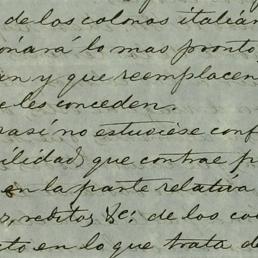 de los colonos italian
onará lo mas pronto
an y que reemplacen
e les conceden.
rasi no estuviése conf
ilidad, que contrae p
en la parte relativa
s, reditos, &c: de los co
cto en lo que trata d